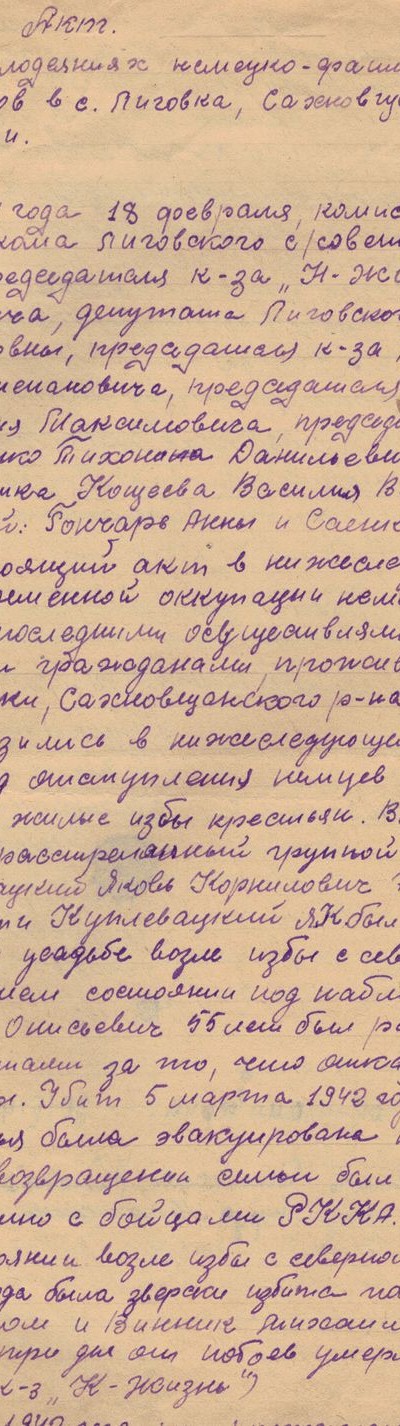 Акт.
лодеяниях немецко-фаши
ов в с. Лиговка, Сахновщ
и.
года 18 февраля, комис
кома Лиговского с/совет
редседателя к-за „Н-Жи
ича, депутата Лиговског
овны, председателя к-за
тепановича, председателя
ия Максимовича, председа
нко Тихона Данильеви
ика Кощеева Василия В
й: Гончарь Анны и Саенк
оящий акт в нижесле
ременной оккупации нем
последними осуществлял
и гражданами, прожив
ки, Сахновщанского р-на
зились в нижеследующе
д отступления немцев
жилые избы крестьян. В
расстрелянный группой
ацкий Яковь Корнилович
ти Куплевацкий ЯК был
усадьбе возле избы с сев
ием состоянии под набл
Онисьевич 55 лет был ра
тами за то, что отка
н. Убит 5 марта 1942 го
ья была эвакуирована
возвращении семьи был
тно с бойцами РККА.
оянии возле избы с северно
ода была зверски избита па
ом и Винник Михаил
три дня от побоев умер
к-з „Н-Жизнь")
1942